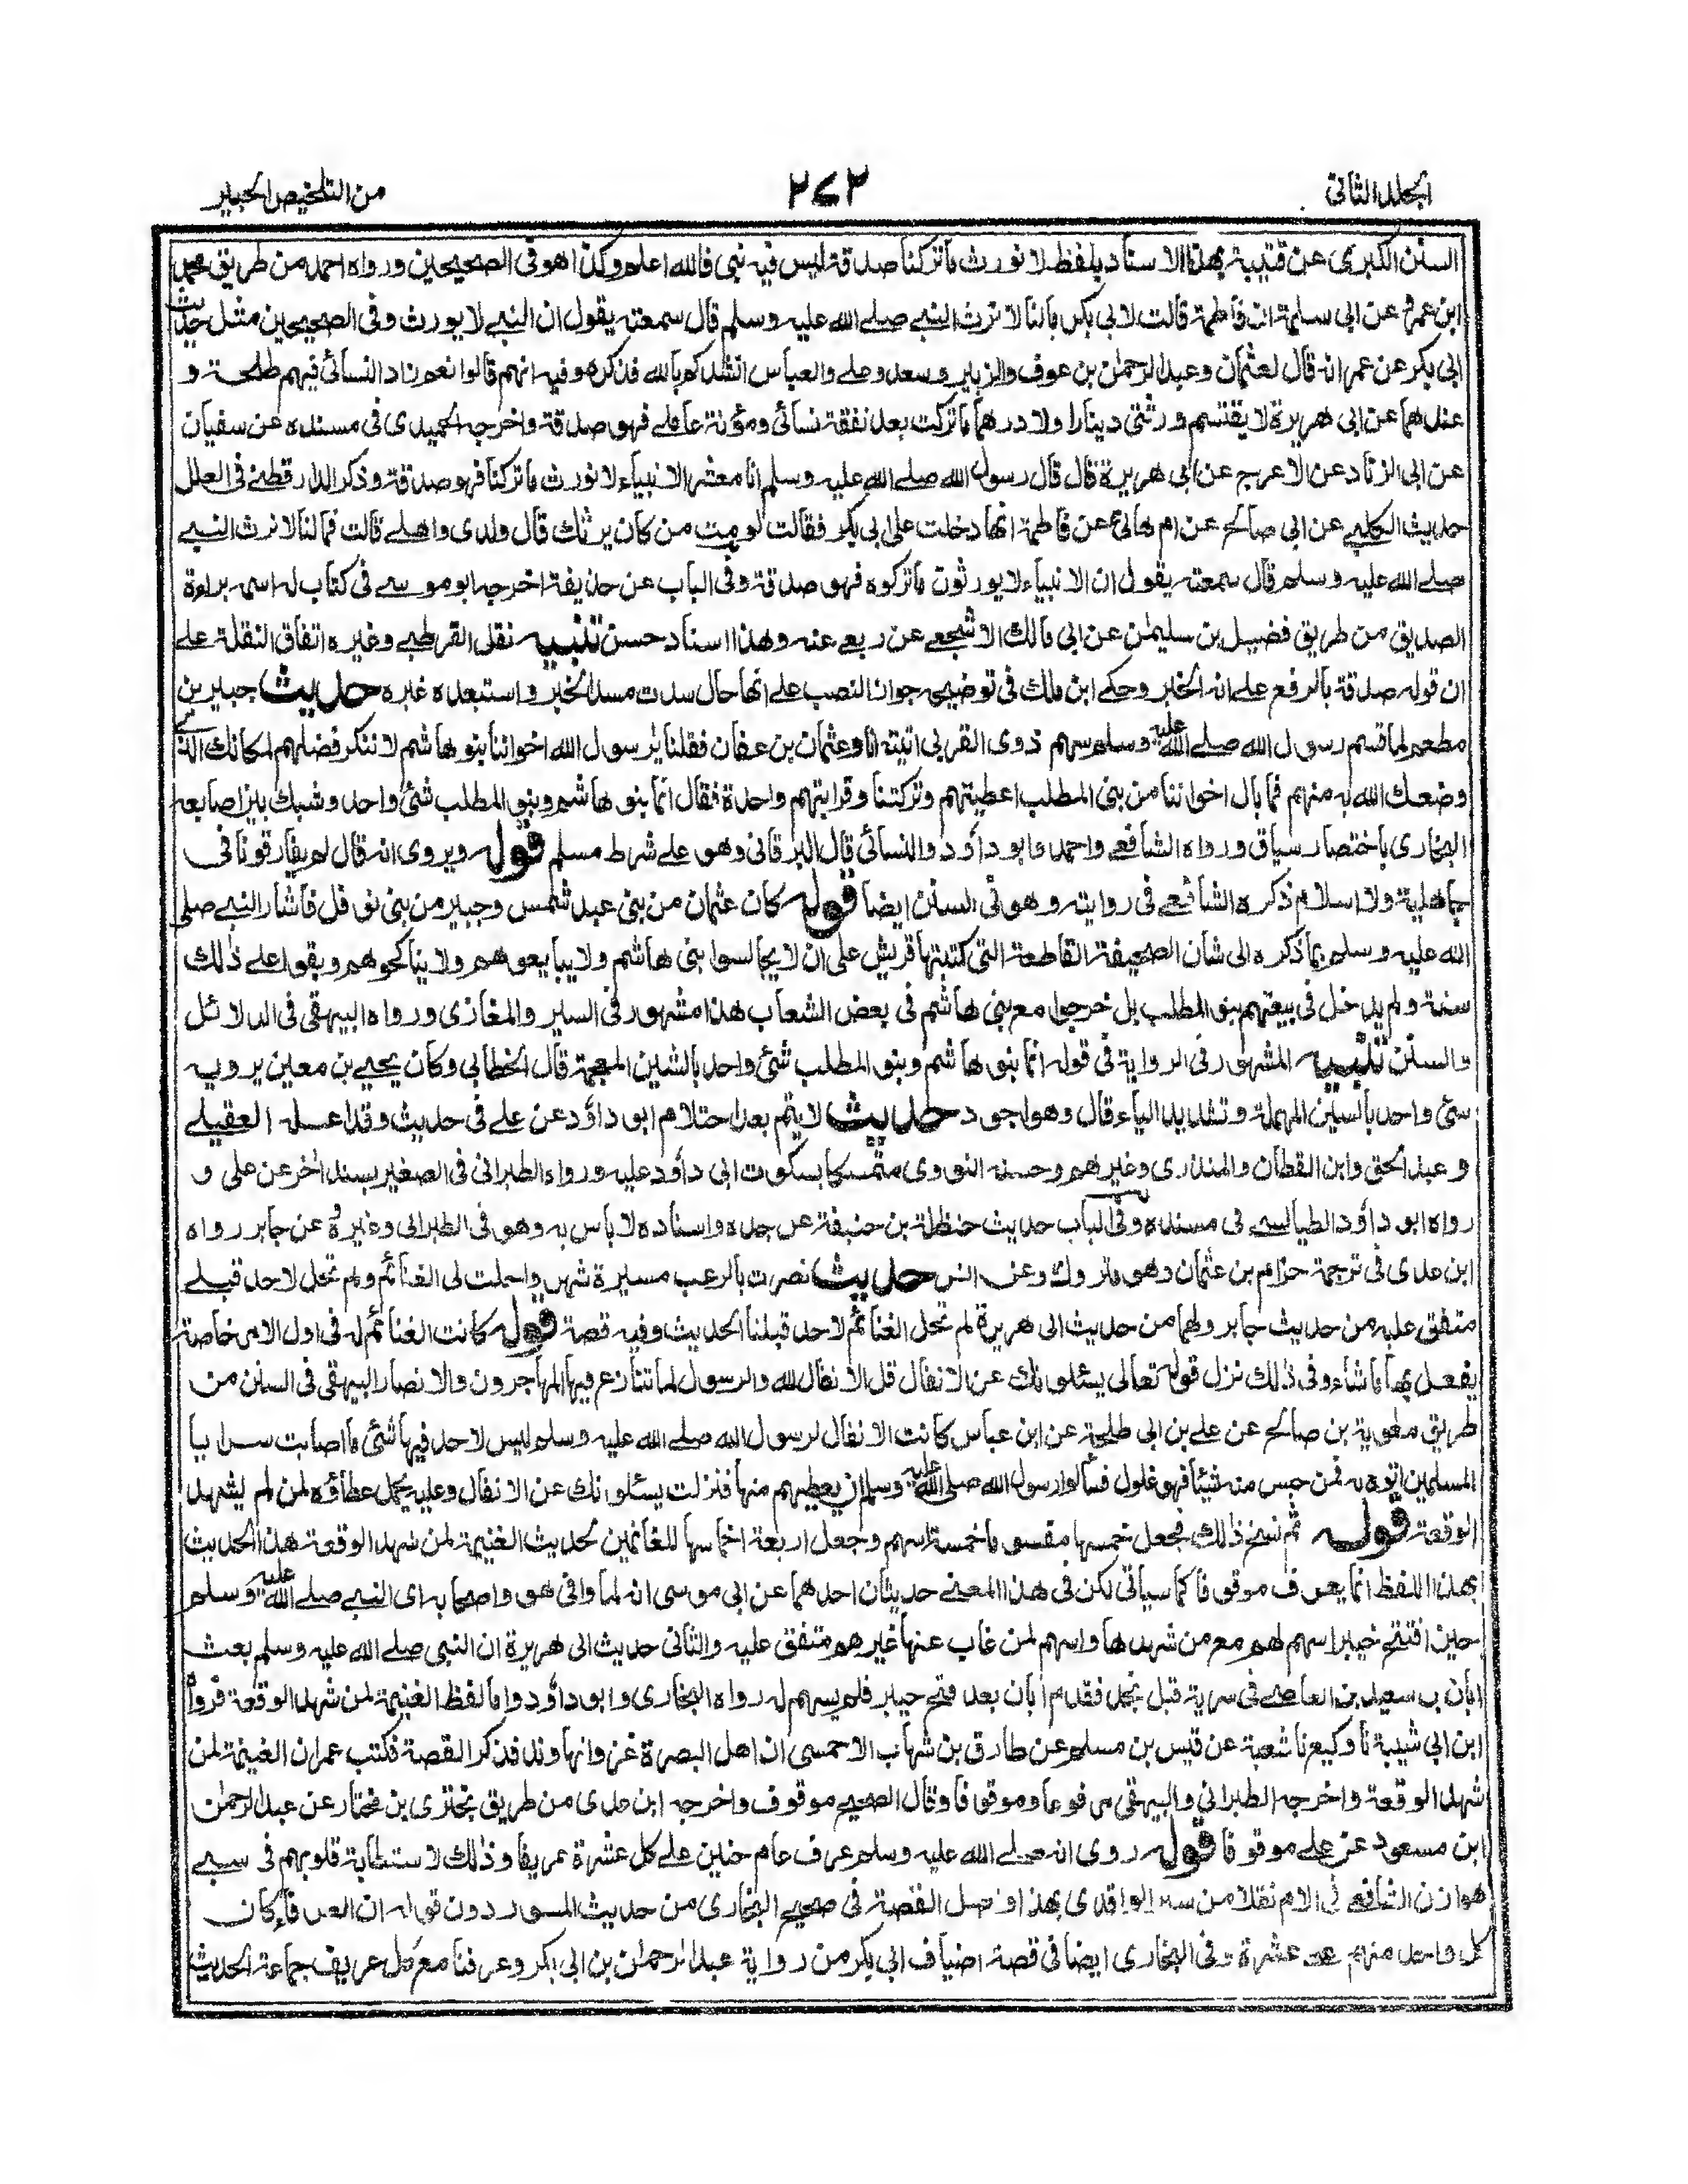 المجلد الثانی
٢٧٢
من التلخيص الحبير
السنن الكبرى عن قتيبة بهذا الاسناد بلفظ لا نورث ماتركنا صدقة ليس فيه نبي فالله اعلم وكذا هو في الصحيحين ورواه احمد من طريق محمد
ابن عمرو عن ابي سلمة ان فاطمة قالت لابي بكر مالنا لا نرث النبي صلى الله عليه وسلم قال سمعته يقول ان النبي لا يورث وفي الصحيحين مثل حديث
ابي بكر عن عمر انه قال لعثمان وعبد الرحمن بن عوف والزبير وسعد وعلي والعباس انشدكم بالله فذكره وفيه انهم قالوا نعم زاد النسائي فيهم طلحة و
عندهما عن ابي هريرة لا يقتسم ورثتي دينارا ولا درهما ماتركت بعد نفقة نسائي ومؤنة عاملي فهو صدقة واخرجه الحميدي في مسنده عن سفيان
عن ابي الزناد عن الاعرج عن ابي هريرة قال قال رسول الله صلى الله عليه وسلم انا معشر الانبياء لا نورث ماتركنا فهو صدقة وذكر الدارقطني في العلل
حديث الكلبي عن ابي صالح عن ام هانئ عن فاطمة انها دخلت على ابي بكر فقالت لو مت من كان يرثك قال ولدي واهلي قالت فمالنا لا نرث النبي
صلى الله عليه وسلم قال سمعته يقول ان الانبياء لا يورثون ماتركوه فهو صدقة وفي الباب عن حذيفة اخرجه ابو موسى في كتاب له اسمه براءة
الصديق من طريق فضيل بن سليمٰن عن ابي مالك الاشجعي عن ربعي عنه وهذا اسناد حسن تنبيه نقل القرطبي وغيره اتفاق النقلة على
ان قوله صدقة بالرفع على انه الخبر وحكى ابن مالك في توضيحه جواز النصب على انها حال سدت مسد الخبر واستبعده غيره حديث جبير بن
مطعم لما قسم رسول الله صلى الله عليه وسلم سهم ذوي القربى اتيته انا وعثمان بن عفان فقلنا يارسول الله اخواننا بنو هاشم لا ننكر فضلهم لمكانك الذي
وضعك الله به منهم فما بال اخواننا من بني المطلب اعطيتهم وتركتنا وقرابتهم واحدة فقال انما بنو هاشم وبنو المطلب شئ واحد وشبك بين اصابعه
البخاري باختصار سياق ورواه الشافعي واحمد وابو داؤد والنسائي قال البرقاني وهو على شرط مسلم قوله ويروى انه قال لم يفارقونا في
جاهلية ولا اسلام ذكره الشافعي في روايته وهو في السنن ايضا قوله كان عثمان من بني عبد شمس وجبير من بني نوفل فاشار النبي صلى
الله عليه وسلم بما ذكره الى شان الصحيفة القاطعة التي كتبتها قريش على ان لا يجالسوا بني هاشم ولا يبايعوهم ولا يناكحوهم وبقوا على ذٰلك
سنة ولم يدخل في بيعتهم بنو المطلب بل خرجوا مع بني هاشم في بعض الشعاب هذا مشهور في السير والمغازى ورواه البيهقي في الدلائل
والسنن تنبيه المشهور في الرواية في قوله انما بنو هاشم وبنو المطلب شئ واحد بالشين المعجمة قال الخطابي وكان يحيى بن معين يرويه
سى واحد بالسين المهملة وتشديد الياء قال وهو اجود حديث لا يتم بعد احتلام ابو داؤد عن علي في حديث وقد اعله العقيلي
و عبد الحق وابن القطان والمنذري وغيرهم وحسنه النووي متمسكا بسكوت ابي داؤد عليه ورواه الطبراني في الصغير بسند اٰخر عن علي و
رواه ابو داؤد الطيالسي في مسنده وفي الباب حديث حنظلة بن حنيفة عن جده واسناده لا باس به وهو في الطبراني وغيره وعن جابر رواه
ابن عدي في ترجمة حزام بن عثمان وهو متروك وعن انس حديث نصرت بالرعب مسيرة شهر واحلت لي الغنائم ولم تحل لاحد قبلي
متفق عليه من حديث جابر ولهما من حديث ابي هريرة لم تحل الغنائم لاحد قبلنا الحديث وفيه قصة قوله كانت الغنائم له في اول الامر خاصة
يفعل بها ماشاء وفي ذٰلك نزل قوله تعالى يسئلونك عن الانفال قل الانفال لله والرسول لما تنازع فيها المهاجرون والانصار البيهقي في السنن من
طريق معٰوية بن صالح عن علي بن ابي طلحة عن ابن عباس كانت الانفال لرسول الله صلى الله عليه وسلم ليس لاحد فيها شئ ما اصابت سرايا
المسلمين اتوه به فمن حبس منه شيئا فهو غلول فسألوا رسول الله صلى الله عليه وسلم ان يعطيهم منها فنزلت يسئلونك عن الانفال وعليه يحمل عطاؤه لمن لم يشهد
الوقعة قوله ثم نسخ ذٰلك فجعل خمسها مقسوما خمسة اسهم وجعل اربعة اخماسها للغانمين لحديث الغنيمة لمن شهد الوقعة هذا الحديث
بهذا اللفظ انما يعرف موقوفا كما سياتي لكن في هذا المعنى حديثان احدهما عن ابي موسى انه لما وافى هو واصحابه اى النبي صلى الله عليه وسلم
حين افتتح خيبر اسهم لهم مع من شهدها واسهم لمن غاب عنها غيرهم متفق عليه والثاني حديث ابي هريرة ان النبي صلى الله عليه وسلم بعث
ابان ب سعيد بن العاصي في سرية قبل نجد فقدم ابان بعد فتح خيبر فلم يسهم له رواه البخاري وابو داؤد واما لفظ الغنيمة لمن شهد الوقعة فرواه
ابن ابي شيبة نا وكيع نا شعبة عن قيس بن مسلم عن طارق بن شهاب الاحمسي ان اهل البصرة غزوا نهاوند فذكر القصة فكتب عمر ان الغنيمة لمن
شهد الوقعة واخرجه الطبراني والبيهقي مرفوعا وموقوفا وقال الصحيح موقوف واخرجه ابن عدي من طريق بختري بن مختار عن عبد الرحمٰن
ابن مسعود عن علي موقوفا قوله روى انه صلى الله عليه وسلم عرف عام حنين على كل عشرة عريفا وذٰلك لاستطابة قلوبهم في سبى
هوازن الشافعي في الام نقلا من سير الواقدي بهذا واصل القصة في صحيح البخاري من حديث المسور دون قوله ان العرفاء كان
كل واحد منهم على عشرة وفي البخاري ايضا في قصة اضياف ابي بكر من رواية عبد الرحمٰن بن ابي بكر وعرفنا مع كل عريف جماعة الحديث